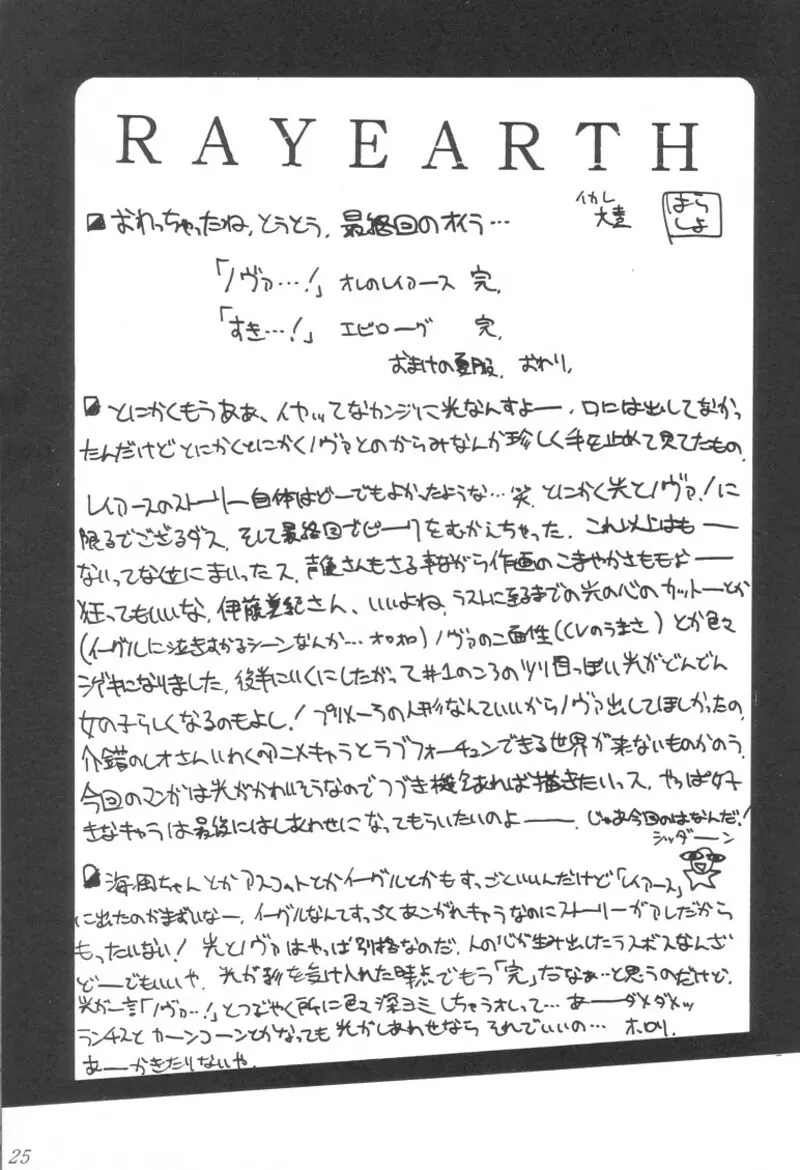 RAYEARTH
イカレ
大臺
はら
しょ
おわっちゃったね、とうとう、最終回のオイラ…
「ノヴァ…!」オレのレイアース 完、
「すき…!」エピローグ 完、
おまけの夏服、おわり、
とにかくもうああ、イヤッてなカンジに光なんすよー、口には出してなかっ
たんだけどとにかくとにかくノヴァとのからみなんか珍しく手を止めて見てたもの、
レイアースのストーリー自体はどーでもよかったような…笑、とにかく光とノヴァ!に
限るでござるダス、そして最終回でピークをむかえちゃった、これ以上はもー
ないってな位にまいったス、声優さんもさる事ながら作画のこまやかさももおー
狂ってもいいな、伊藤美紀さん、いいよね、ラストに至るまでの光の心のカットーとか
(イーグルに泣きむかるシーンなんか…オロオロ)ノヴァの二面性(CVのうまさ)とか色々
シゲキになりました、後半にいくにしたがって#1のころのツリ目っぽい光がどんどん
女の子らしくなるのもよし!プリメーラの人形なんていいからノヴァ出してほしかったの、
介錯のしオさんいわくのアニメキャラとラブフォーチュンできる世界が来ないものかのう、
今回のマンガは光がかわいそうなのでつづき機会あれば描きたいっス、やっぱ好
きなキャラは最後にはしあわせになってもらいたいのよー、じゃあ今回のはなんだ!
ジッダーン
海風ちゃんとかアスコットとかイーグルとかもすっごといいんだけど「レイアース」
に出たのがまずいなー、イーグルなんてすっごくあこがれキャラなのにストーリーがアレだから
もったいない!光とノヴァはやっぱ別格なのだ、人の心が生み出したラスボスなんざ
どーでもいいや、光が影を受け入れた時点でもう「完」だなぁ…と思うのだけど、
光が一言「ノヴァ…!」とつぶやく所に色々深ヨミしちゃうオレって…あーダメダメッ
ランチスと カーンコーンとかなっても光がしあわせなら それでいいの… ホロリ、
あーかきたりないや、
25